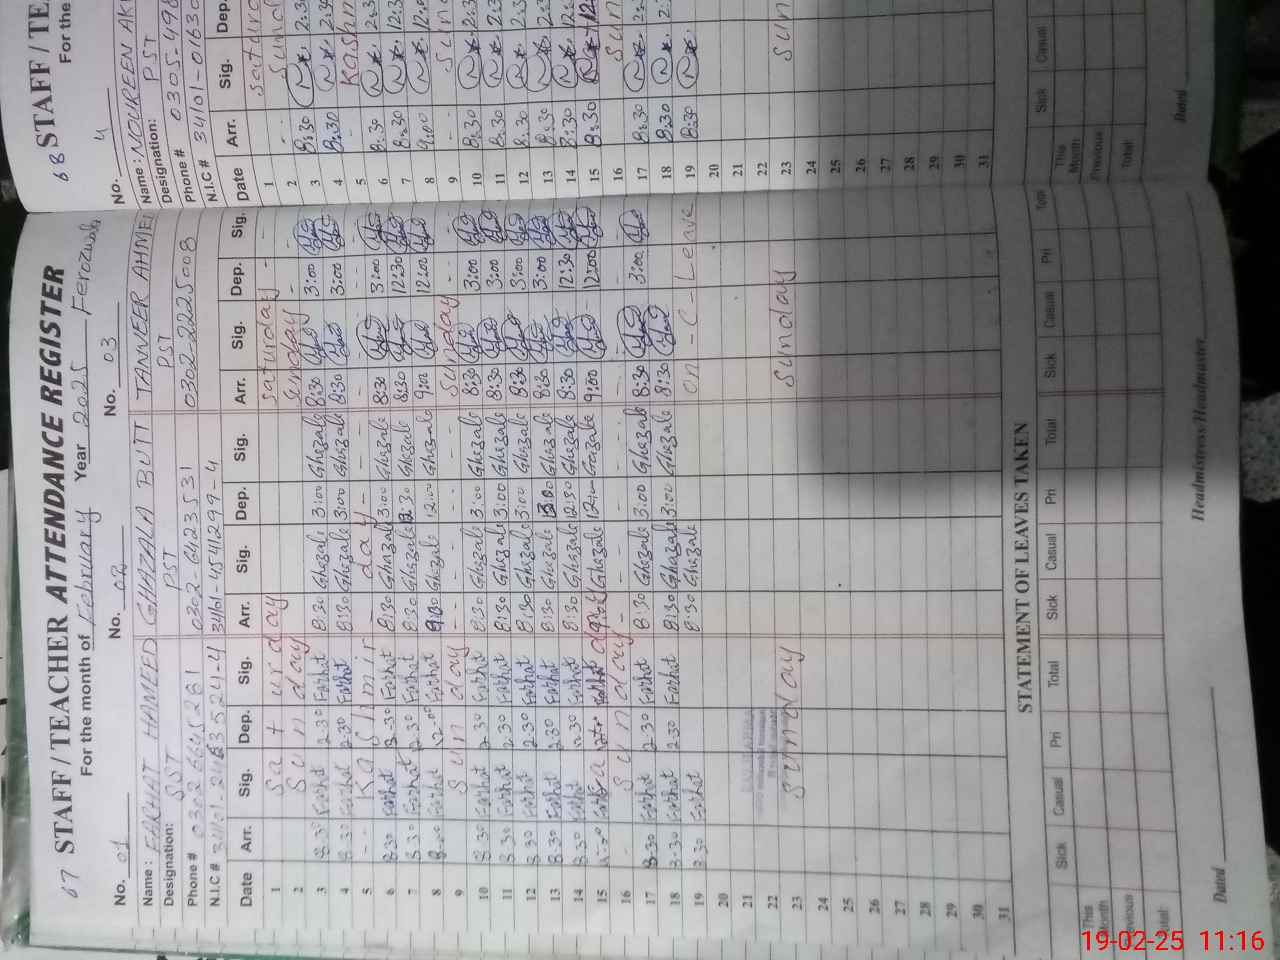 67 STAFF / TEACHER ATTENDANCE REGISTER
For the month of February Year 2025
No. 01 No. 02 No. 03
Name: FARHAT HAMEED GHAZALA BUTT TANVEER AHMED
Designation: SST PST PST
Phone # 0302 6645281 0302-6423531 0302-2225008
N.I.C # 34101-4541299-4
Date Arr. Sig. Dep. Sig. Arr. Sig. Dep. Sig. Arr. Sig. Dep. Sig.
1 Saturday Saturday
2 Sunday Sunday
3 8.30 Farhat 2.30 Farhat 8:30 Ghazala 3:00 Ghazala 8:30 3:00
4 8.30 Farhat 2.30 Farhat 8:30 Ghazala 3:00 Ghazala 8:30 3:00
5 Kashmir day
6 8.30 Farhat 2.30 Farhat 8:30 Ghazala 3:00 Ghazala 8:30 3:00
7 8.30 Farhat 12.30 Farhat 8:30 Ghazala 12:30 Ghazala 8:30 12:30
8 Farhat 12.00 Farhat 9:00 Ghazala 12:00 Ghazala 9:00 12:00
9 Sunday Sunday
10 8.30 Farhat 2.30 Farhat 8:30 Ghazala 3:00 Ghazala 8:30 3:00
11 8.30 Farhat 2.30 Farhat 8:30 Ghazala 3:00 Ghazala 8:30 3:00
12 8.30 Farhat 2.30 Farhat 8:30 Ghazala 3:00 Ghazala 8:30 3:00
13 8.30 Farhat 2.30 Farhat 8:30 Ghazala 3:00 Ghazala 8:30 3:00
14 8.30 Farhat 12.30 Farhat 8:30 Ghazala 12:30 Ghazala 8:30 12:30
15 Farhat Ghazala 12:00 Ghazala 9:00 12:00
16 Sunday
17 8.30 Farhat 2.30 Farhat 8:30 Ghazala 3:00 Ghazala 8:30 3:00
18 8.30 Farhat 2.30 Farhat 8:30 Ghazala 3:00 Ghazala 8:30
19 8.30 Farhat 8:30 Ghazala on - C - Leave
20
21
22
23 Sunday Sunday
24
25
26
27
28
29
30
31
STATEMENT OF LEAVES TAKEN
Sick Casual Pri Total Sick Casual Pri Total Sick Casual Pri Top
This Month
Previous
Total:
Dated Headmistress/Headmaster
68 STAFF / TEA
For the
No. 4
Name: NOUREEN AK
Designation: PST
Phone # 0305-498
N.I.C # 34101-01630
Date Arr. Sig. Dep.
1 Saturd
2 Sund
3 8:30 2:3
4 8:30 2:3
5 Kashm
6 8:30 2:3
7 8:30 12:3
8 9:00 12:0
9 Sun
10 8:30 2:3
11 8:30 2:3
12 8:30 2:3
13 8:30 2:3
14 8:30 12:
15 8:30 12
16 Sun
17 8:30 2:3
18 8:30 2:
19 8:30
20
21
22
23 Sun
24
25
26
27
28
29
30
31
Sick Casual
This Month
Previous
Total:
Dated
19-02-25 11:16